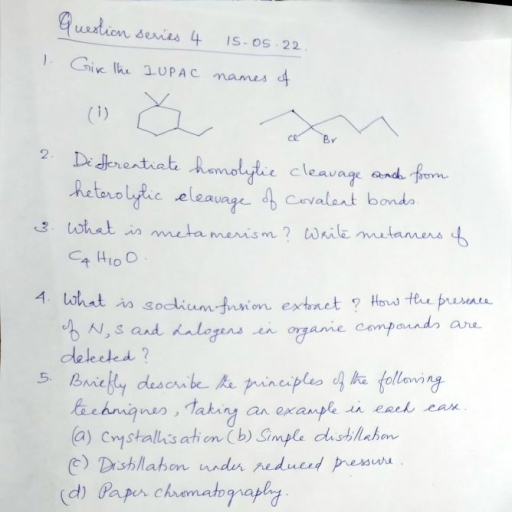 Question series 4 15-05-22.
1. Give the IUPAC names of
(i)
Cl Br
2. Differentiate homolytic cleavage from
heterolytic cleavage of covalent bonds.
3. What is metamerism? Write metamers of
C4H10O.
4. What is sodium fusion extract? How the presence
of N, S and halogens in organic compounds are
detected?
5. Briefly describe the principles of the following
techniques, taking an example in each case.
(a) Crystallisation (b) Simple distillation
(c) Distillation under reduced pressure.
(d) Paper chromatography.